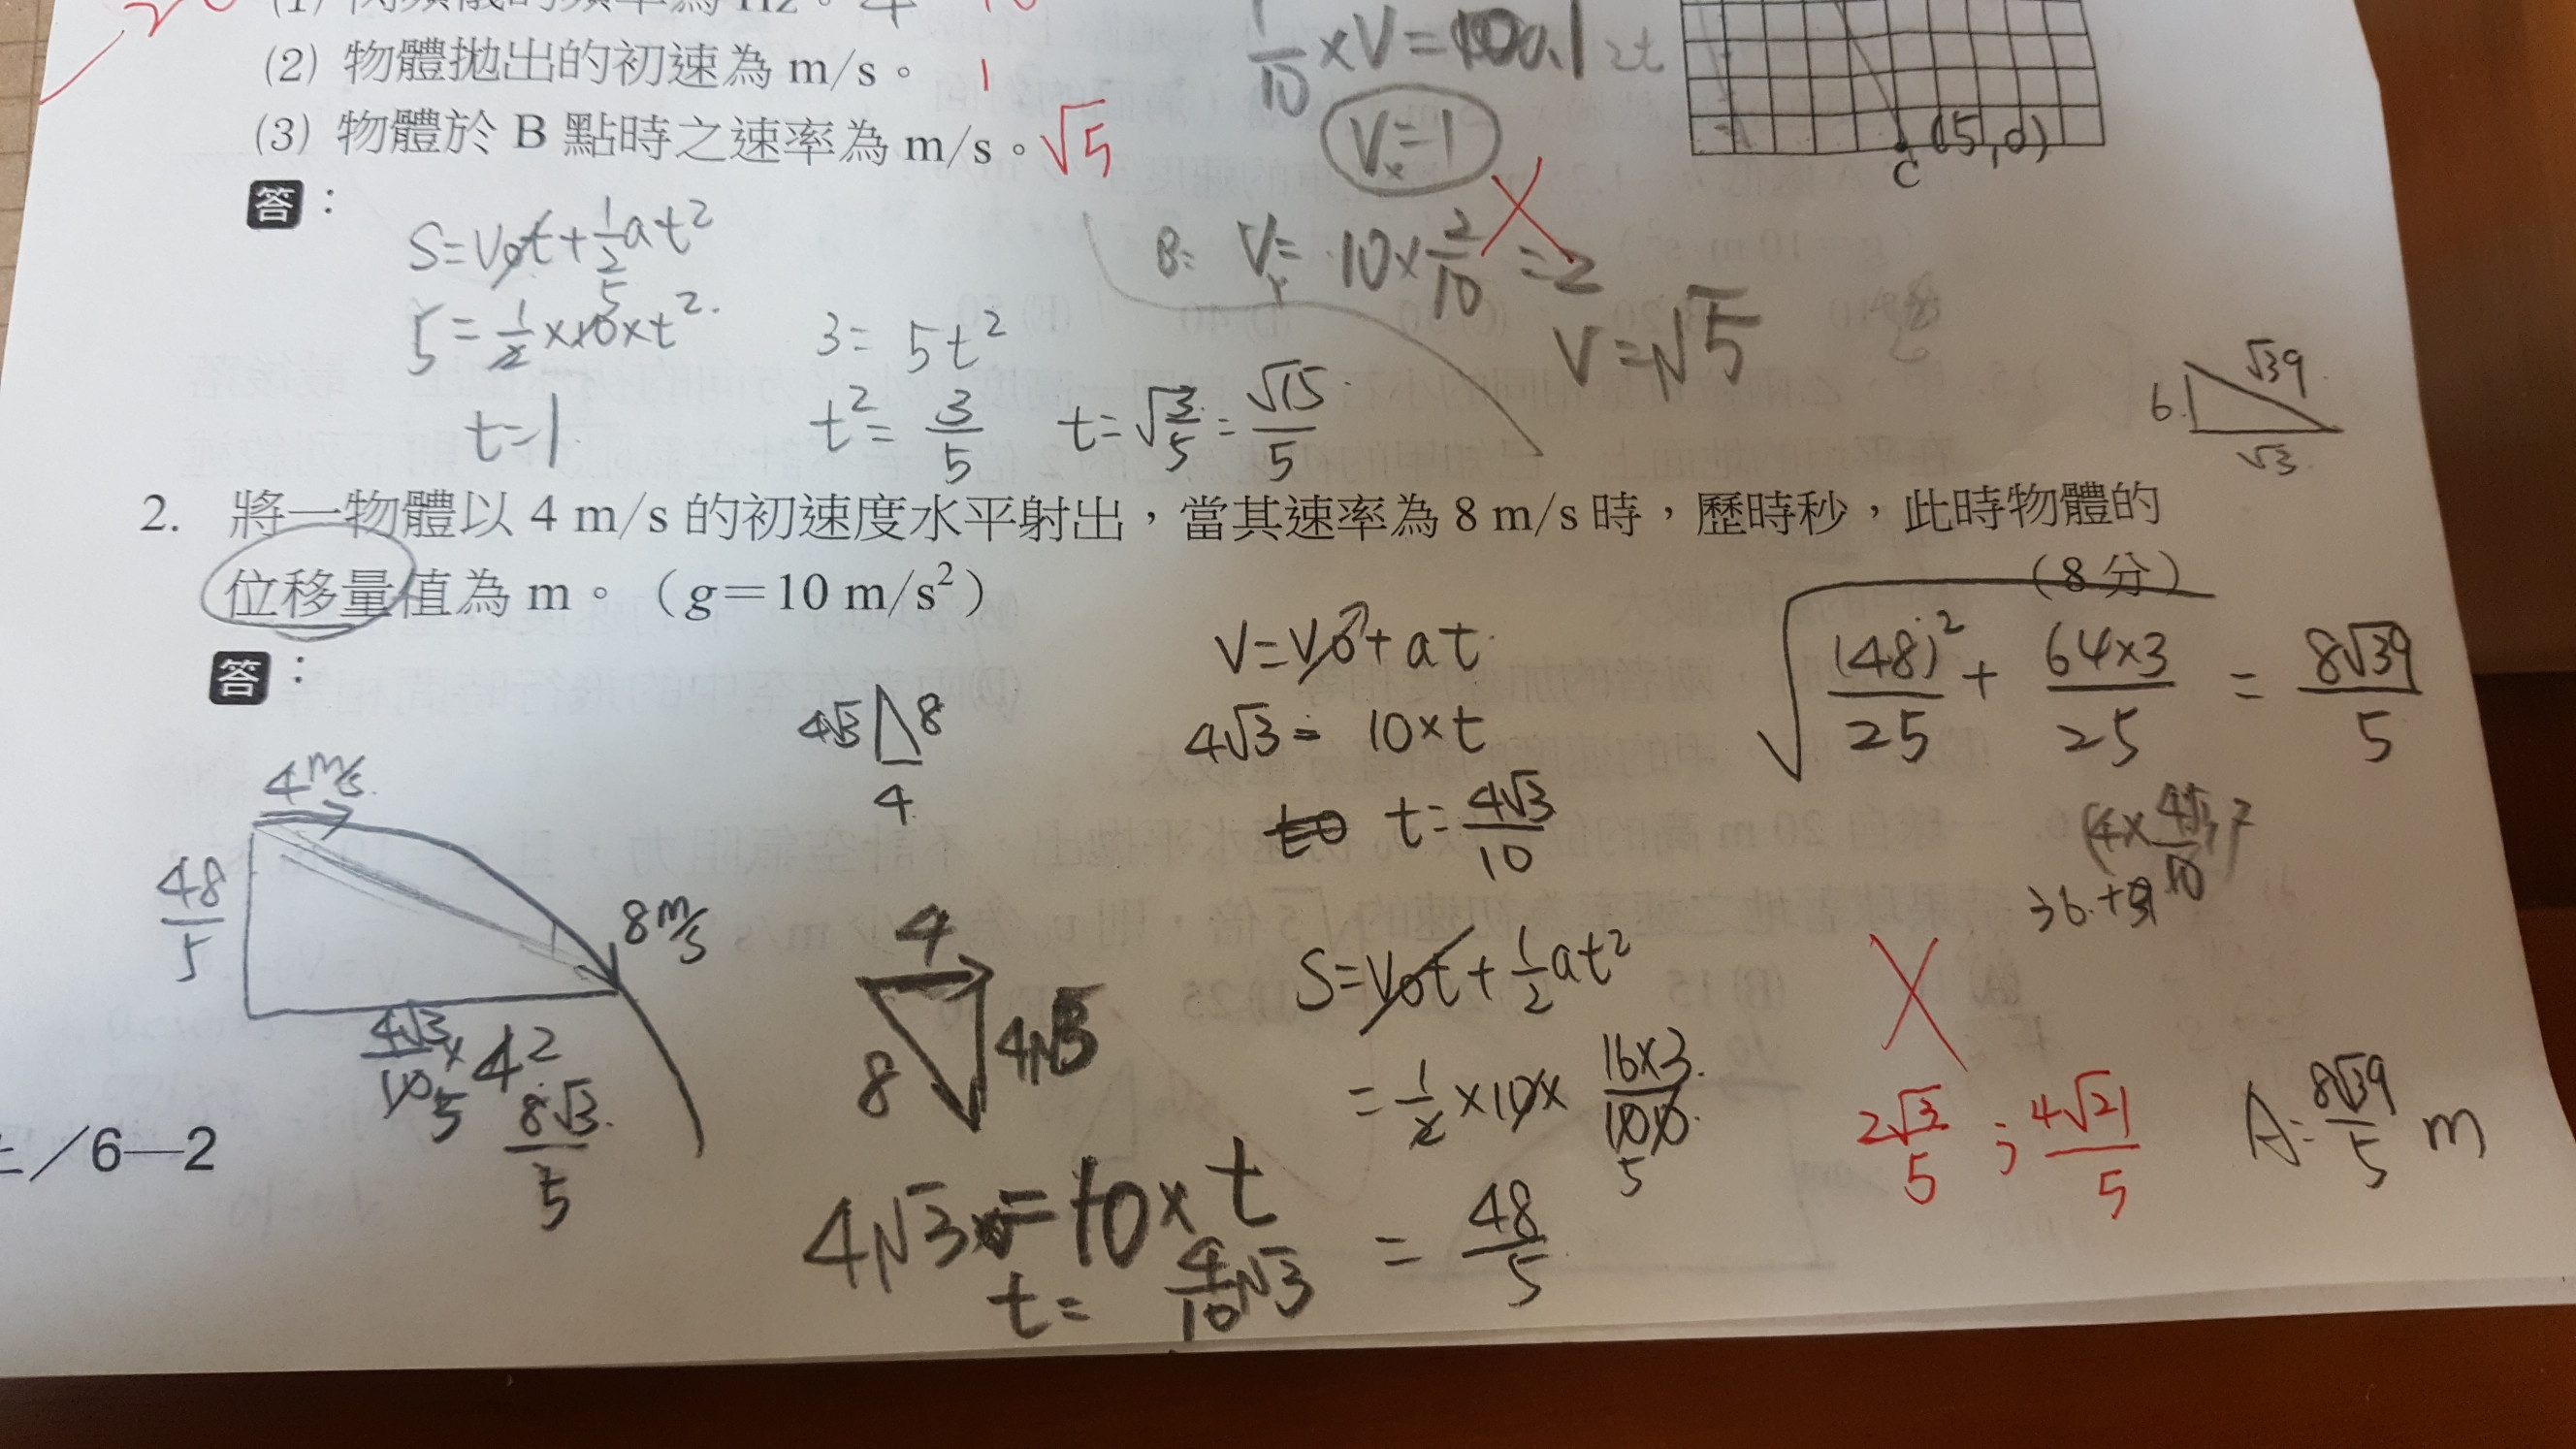 (2) 物體拋出的初速為 m/s。 1
(3) 物體於 B 點時之速率為 m/s。 √5
1/10 × V = 0.1
Vₓ=1
C (5,0)
答：
S=V₀t+1/2at²
5=1/2×10×t²
t=1
3=5t²
t²=3/5 t=√3/5=√15/5
B: Vy=10×2/10=2
V=√5
6 √39
√3
2. 將一物體以 4 m/s 的初速度水平射出，當其速率為 8 m/s 時，歷時秒，此時物體的
位移量值為 m。（g＝10 m/s²） （8 分）
答：
4 m/s
48/5
8 m/s
4√3/10 × 4
8√3/5
4√3 8
4
4
8 4√3
4√3=10×t
t=4/10√3
V=V₀+at
4√3=10×t
t=4√3/10
S=V₀t+1/2at²
=1/2×10×16×3/100
=48/5
√(48)²/25+64×3/25=8√39/5
(4×4√3/10)²
2√3/5 ; 4√21/5
A=8√39/5 m
／6—2